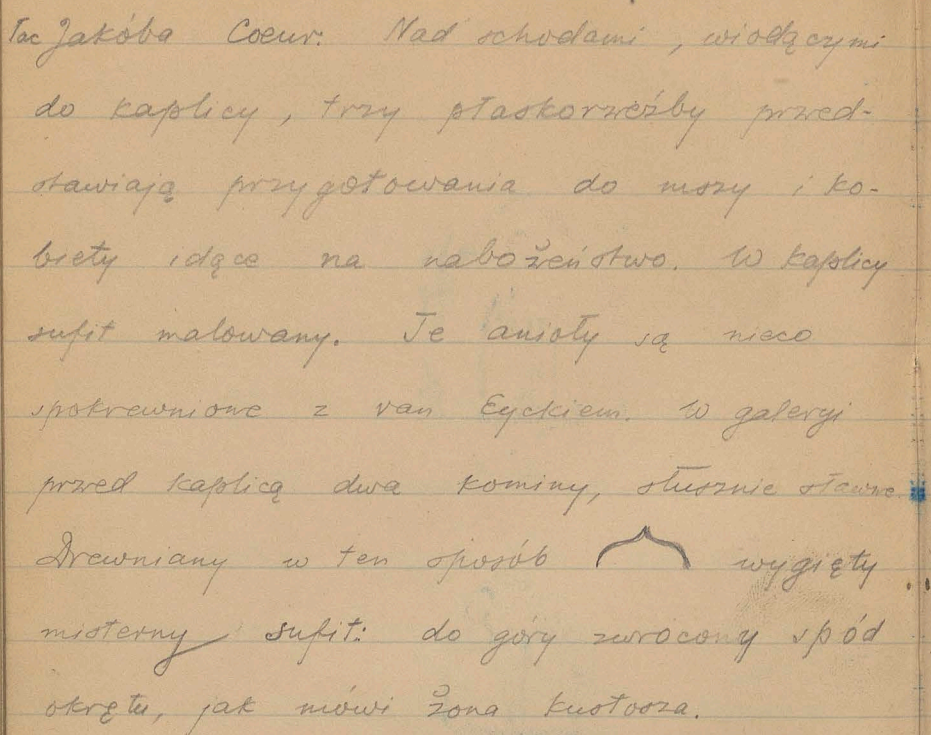 Pac Jakóba Coeur. Nad schodami, wiodącymi
do kaplicy, trzy płaskorzeźby przed-
stawiają przygotowania do mszy i ko-
biety idące na nabożeństwo. W kaplicy
sufit malowany. Te anioły są nieco
spokrewnione z van Eyckiem. W galerji
przed kaplicą dwa kominy, słusznie sławne.
Drewniany w ten sposób wygięty
misterny sufit: do góry zwrócony spód
okrętu, jak mówi żona kustosza.